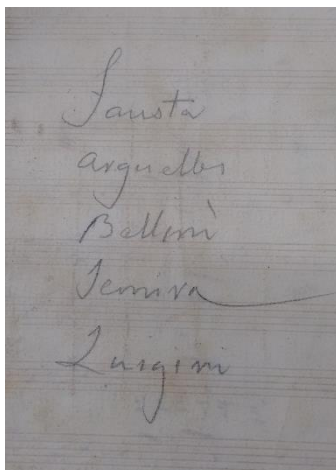 Fausta
Arguelles
Bellini
Semira
Luigini